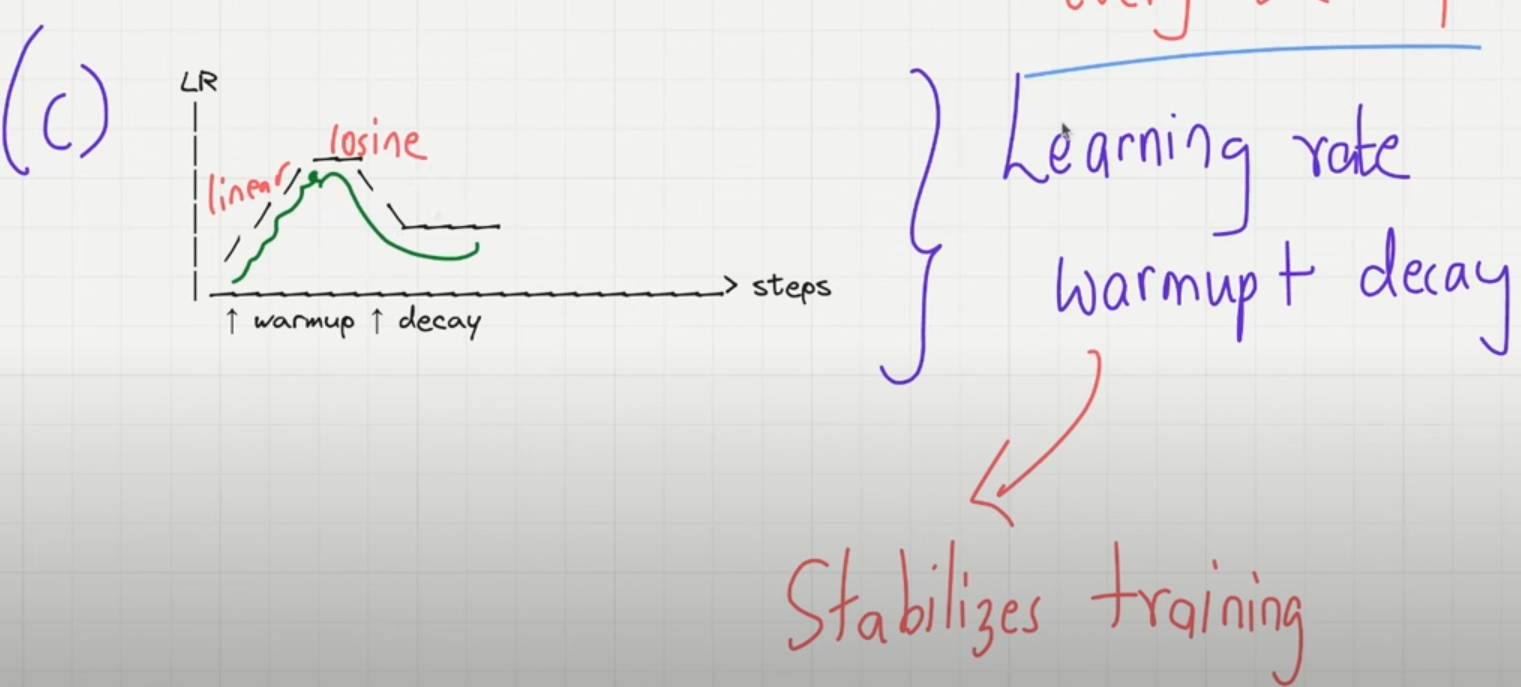 (c)
LR
cosine
linear
> steps
↑ warmup ↑ decay
Learning rate
warmup + decay
Stabilizes training